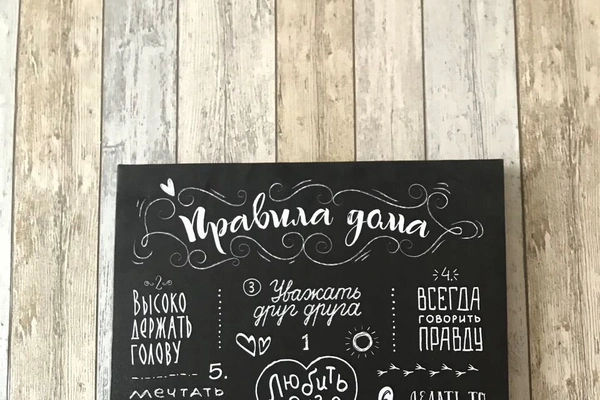 Правила дома
2
ВЫСОКО
ДЕРЖАТЬ
ГОЛОВУ
3 Уважать
друг друга
4.
ВСЕГДА
ГОВОРИТЬ
ПРАВДУ
1
Любить
5.
мечтать
6
ДЕЛАТЬ ТО